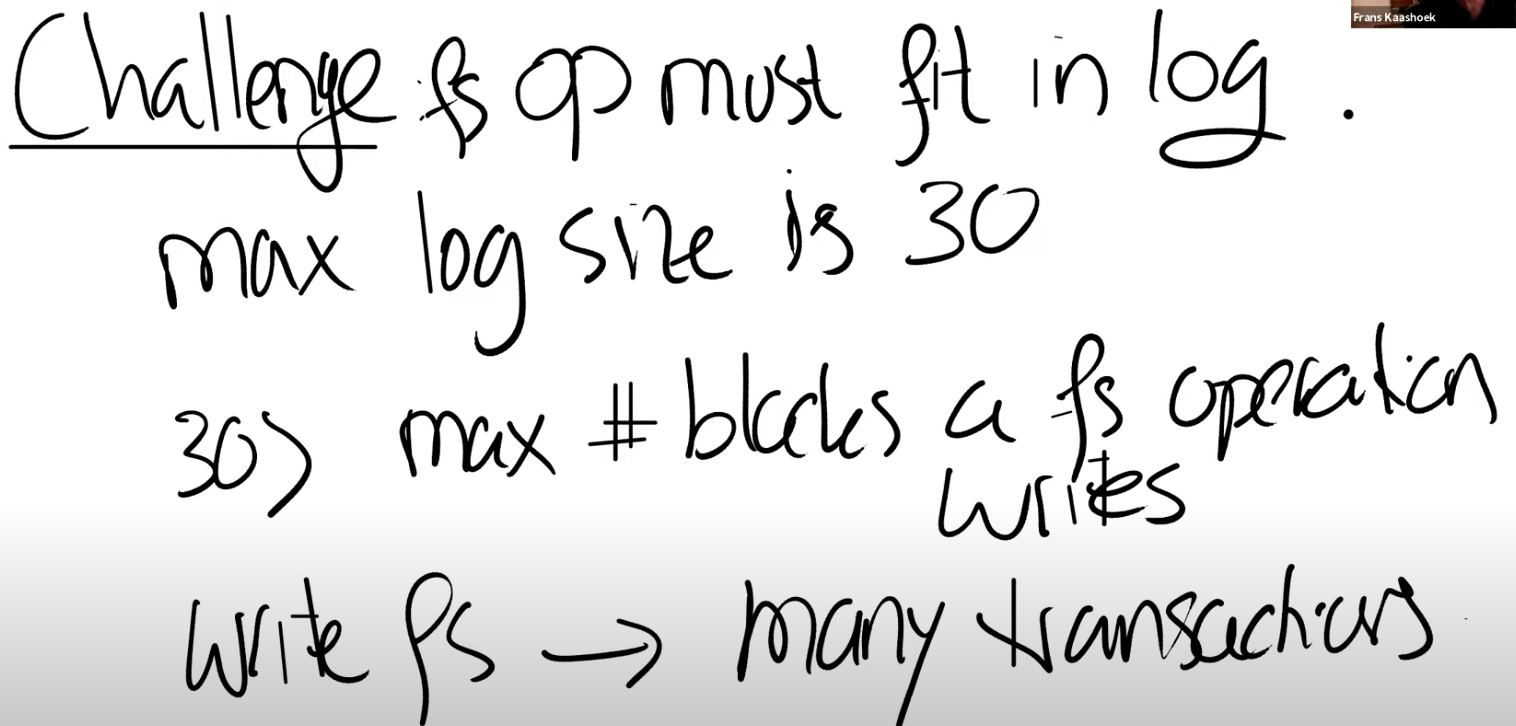 Frans Kaashoek
Challenge fs op must fit in log.
max log size is 30
30> max # blocks a fs operation
writes
write fs → many transactions